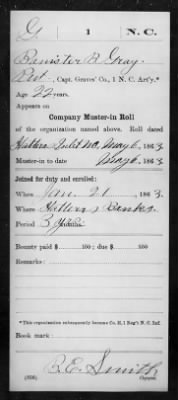 G | 1 | N.C.
Banister R. Gray
Pvt., Capt. Graves' Co., 1 N.C. Art'y.*
Age 22 years.
Appears on
Company Muster-in Roll
of the organization named above. Roll dated
Hatteras Inlet NC, May 6, 1863
Muster-in to date May 6, 1863
Joined for duty and enrolled:
When Jan. 21, 1863
Where Hatteras Banks.
Period 3 years
Bounty paid $ 100; due $ 100
Remarks:
*This organization subsequently became Co. H, 1 Reg't N.C. Inf.
Book mark:
B.E. Smith
(356) Copyist.